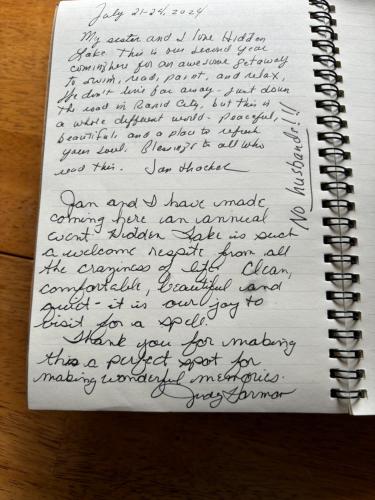 July 21-24, 2024
My sister and I love Hidden
Lake. This is our second year
coming here for an awesome getaway
to swim, read, paint, and relax,
We don't live far away - just down
the road in Rapid City, but this is
a whole different world. Peaceful,
beautiful, and a place to refresh
your soul. Blessings to all who
read this. Jan
No husbands!!!
Jan and I have made
coming here an annual
event. Hidden Lake is such
a welcome respite from all
the craziness of life. Clean,
comfortable, beautiful and
quiet - it is our joy to
visit for a spell.
Thank you for making
this a perfect spot for
making wonderful memories.
Judy Harmon